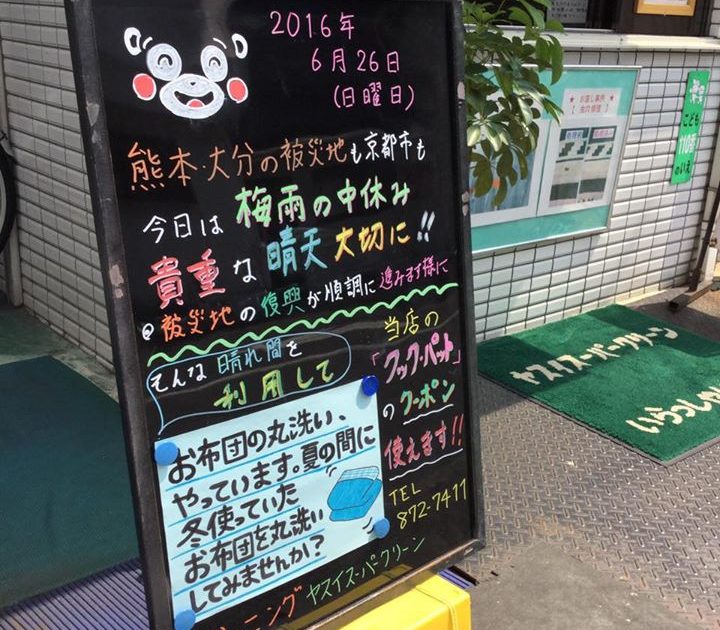 2016年
6月26日
(日曜日)
熊本・大分の被災地も京都市も
今日は 梅雨の中休み
貴重な晴天大切に!!
@被災地の復興が順調に進みます様に
そんな晴れ間を
利用して
当店の
「クック・パット」
のクーポン
使えます!!
TEL
872-7411
お布団の丸洗い、
やっています。夏の間に
冬使っていた
お布団を丸洗い
してみませんか?
ーニング ヤスイスーパークリーン
こども
110番
のいえ
ヤスイスーパークリーン
いらっしゃ